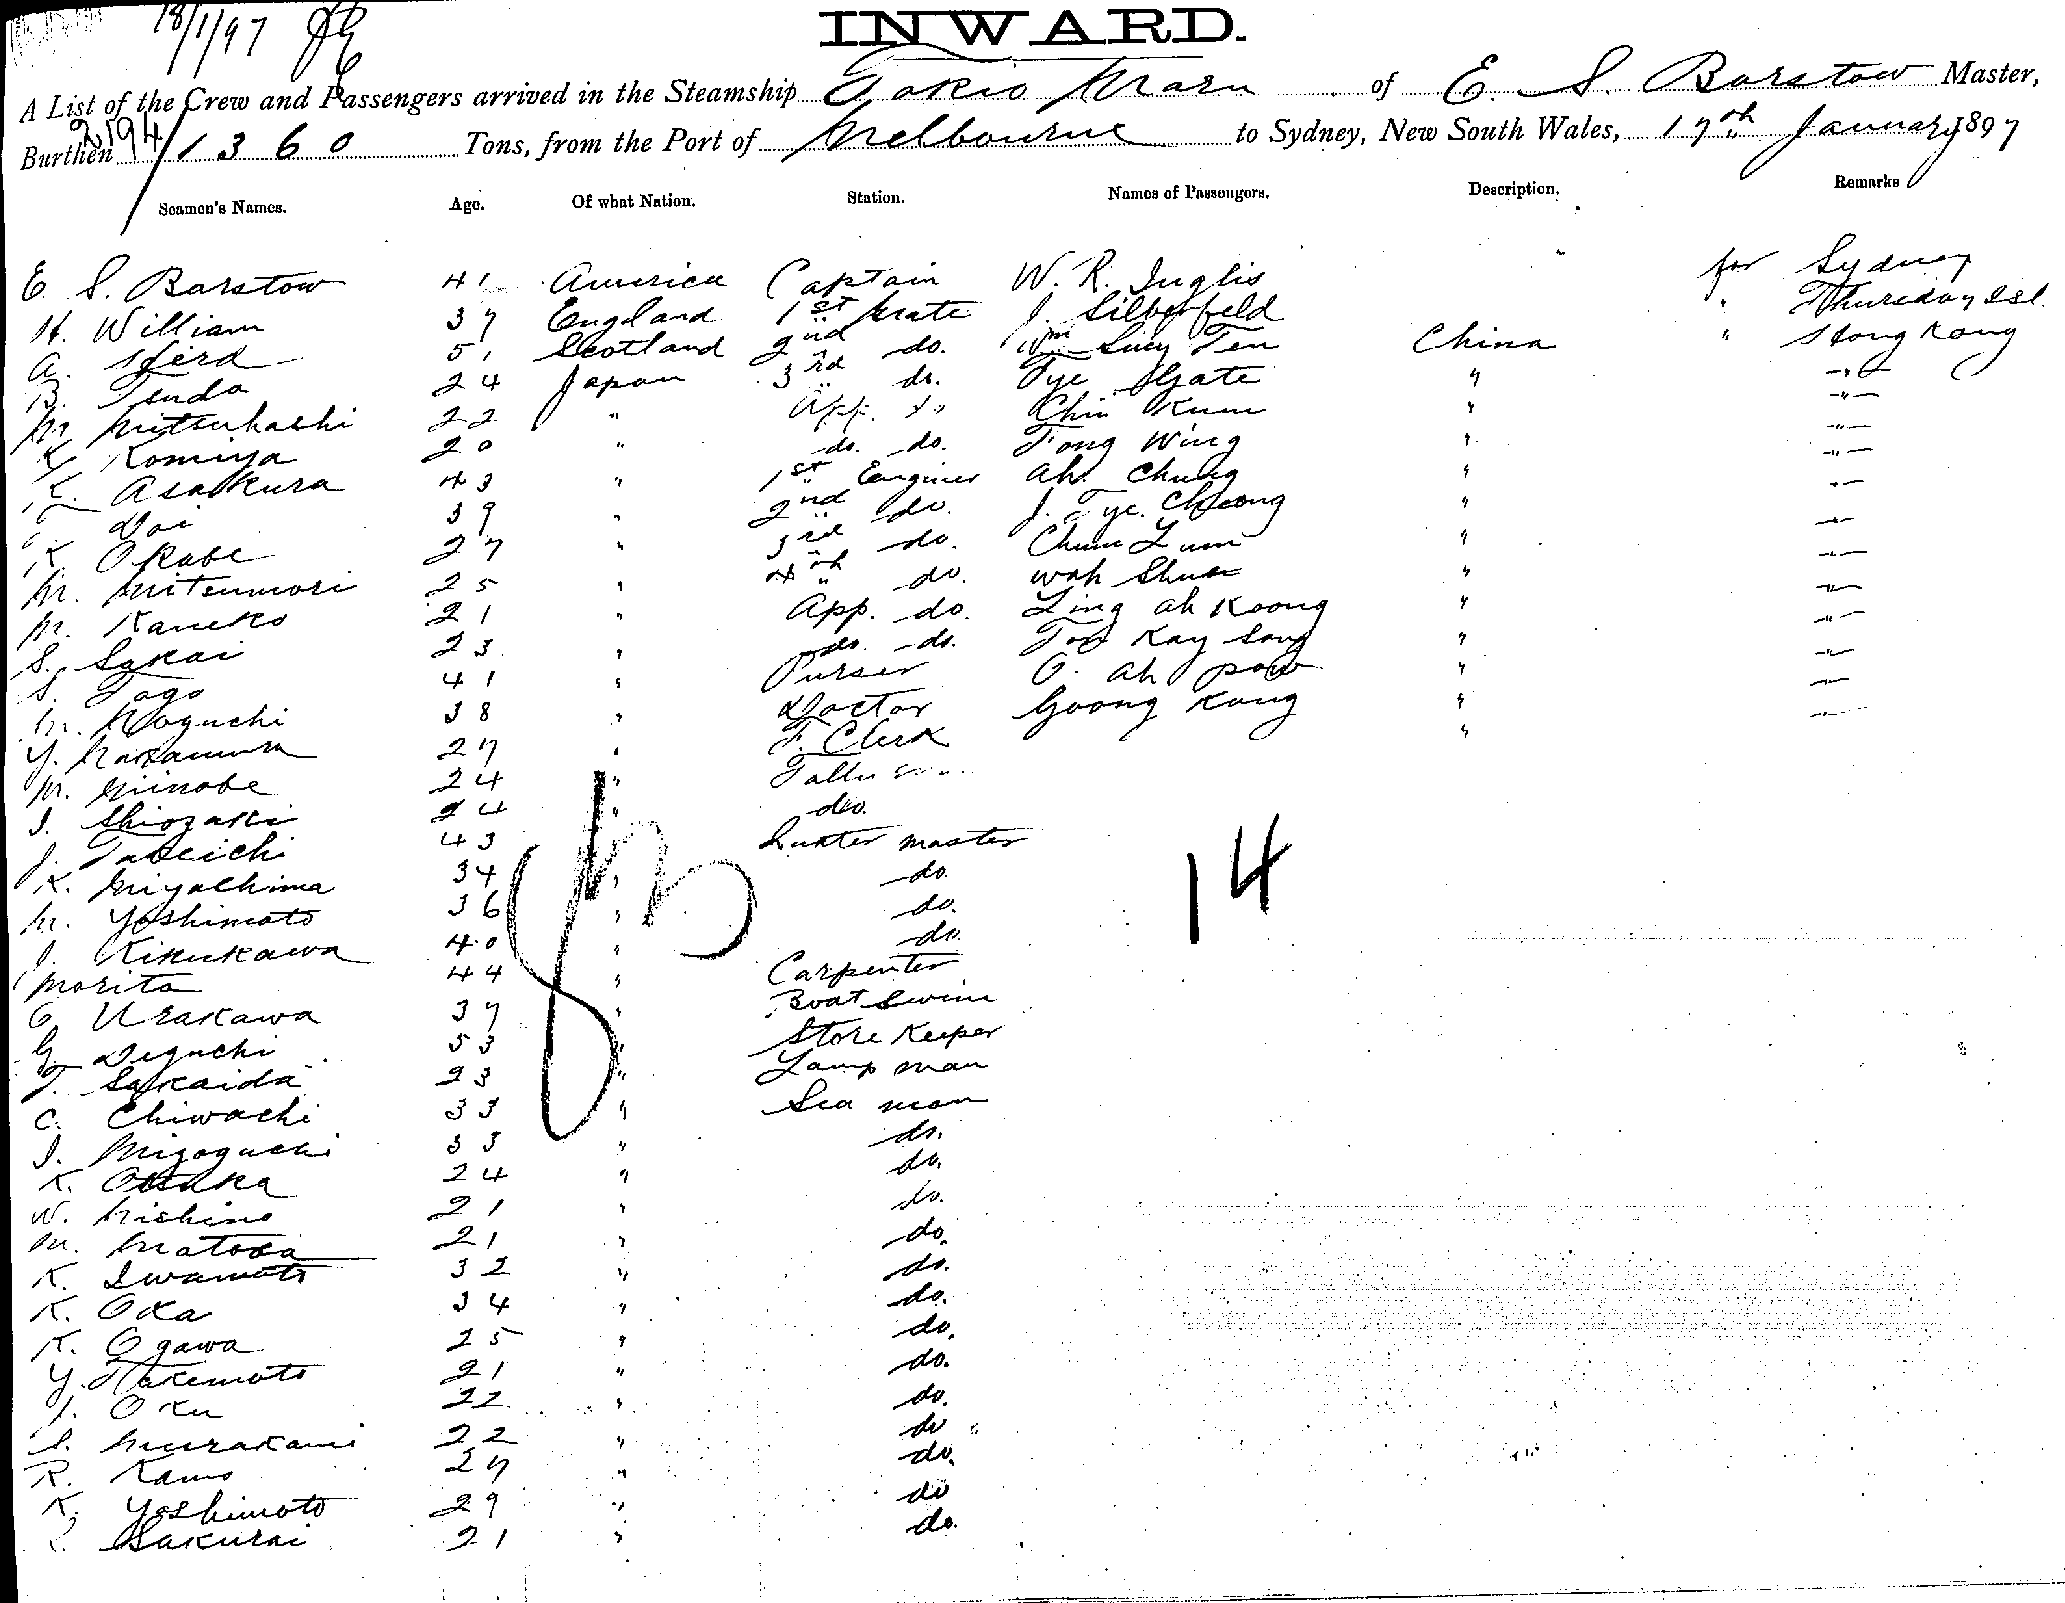 18/1/97
INWARD.
A List of the Crew and Passengers arrived in the Steamship Tokio Maru of E. S. Barstow Master,
Burthen 2194/1360 Tons, from the Port of Melbourne to Sydney, New South Wales, 17th January 1897
Seamen's Names. Age. Of what Nation. Station. Names of Passengers. Description. Remarks
E. S. Barstow 41 America Captain W. R. Inglis for Sydney
H. William 37 England 1st Mate J. Silberfeld " Thursday Isl.
A. Herd 51 Scotland 2nd do. Wm Ten China " Hong Kong
B. Tendo 24 Japan 3rd do. Tye Gate " -"-
M. Mitsuhashi 22 " App. do Chin Kum " -"-
Komiya 20 " do. do. Fong Wing " -"-
K. Asakura 43 " 1st Enginer Ah. Chung " -"-
Doi 39 " 2nd do. J. Tye. Cheong " -"-
K. Okabe 27 " 3rd do. Chun Lum " -"-
M. Mitsumori 25 " 4th do. Wah Shun " -"-
M. Kaneko 21 " App. do. Ling Ah Koong " -"-
S. Sakai 23 " do. do. Kay Song " -"-
S. Togo 41 " Purser O. Ah Pow " -"-
M. Noguchi 38 " Doctor Goong Kong " -"-
Y. Nakamura 27 " F. Clerk "
M. Minobe 24 "
I. Shiozaki 24 " do.
J. Takeichi 43 Quater master
K. Miyachima 34 " do.
M. Yoshimoto 36 " do.
J. Kikukawa 40 " do.
Morita 44 " Carpenter
G. Urakawa 37 " Boat Swine
G. Deguchi 53 " Store Keeper
T. Sakaida 23 " Lamp man
C. Chiwachi 33 " Sea man
I. Mizoguchi 33 " do.
K. Otsuka 24 " do.
W. Nishino 21 " do.
M. Matoba 21 " do.
K. Iwamoto 32 " do.
K. Oka 34 " do.
K. Ogawa 25 " do.
Y. Takemoto 21 " do.
I. Oku 22 " do.
S. Murakami 22 " do
R. Kamo 27 " do.
K. Yoshimoto 29 " do
Sakurai 21 " do.
14